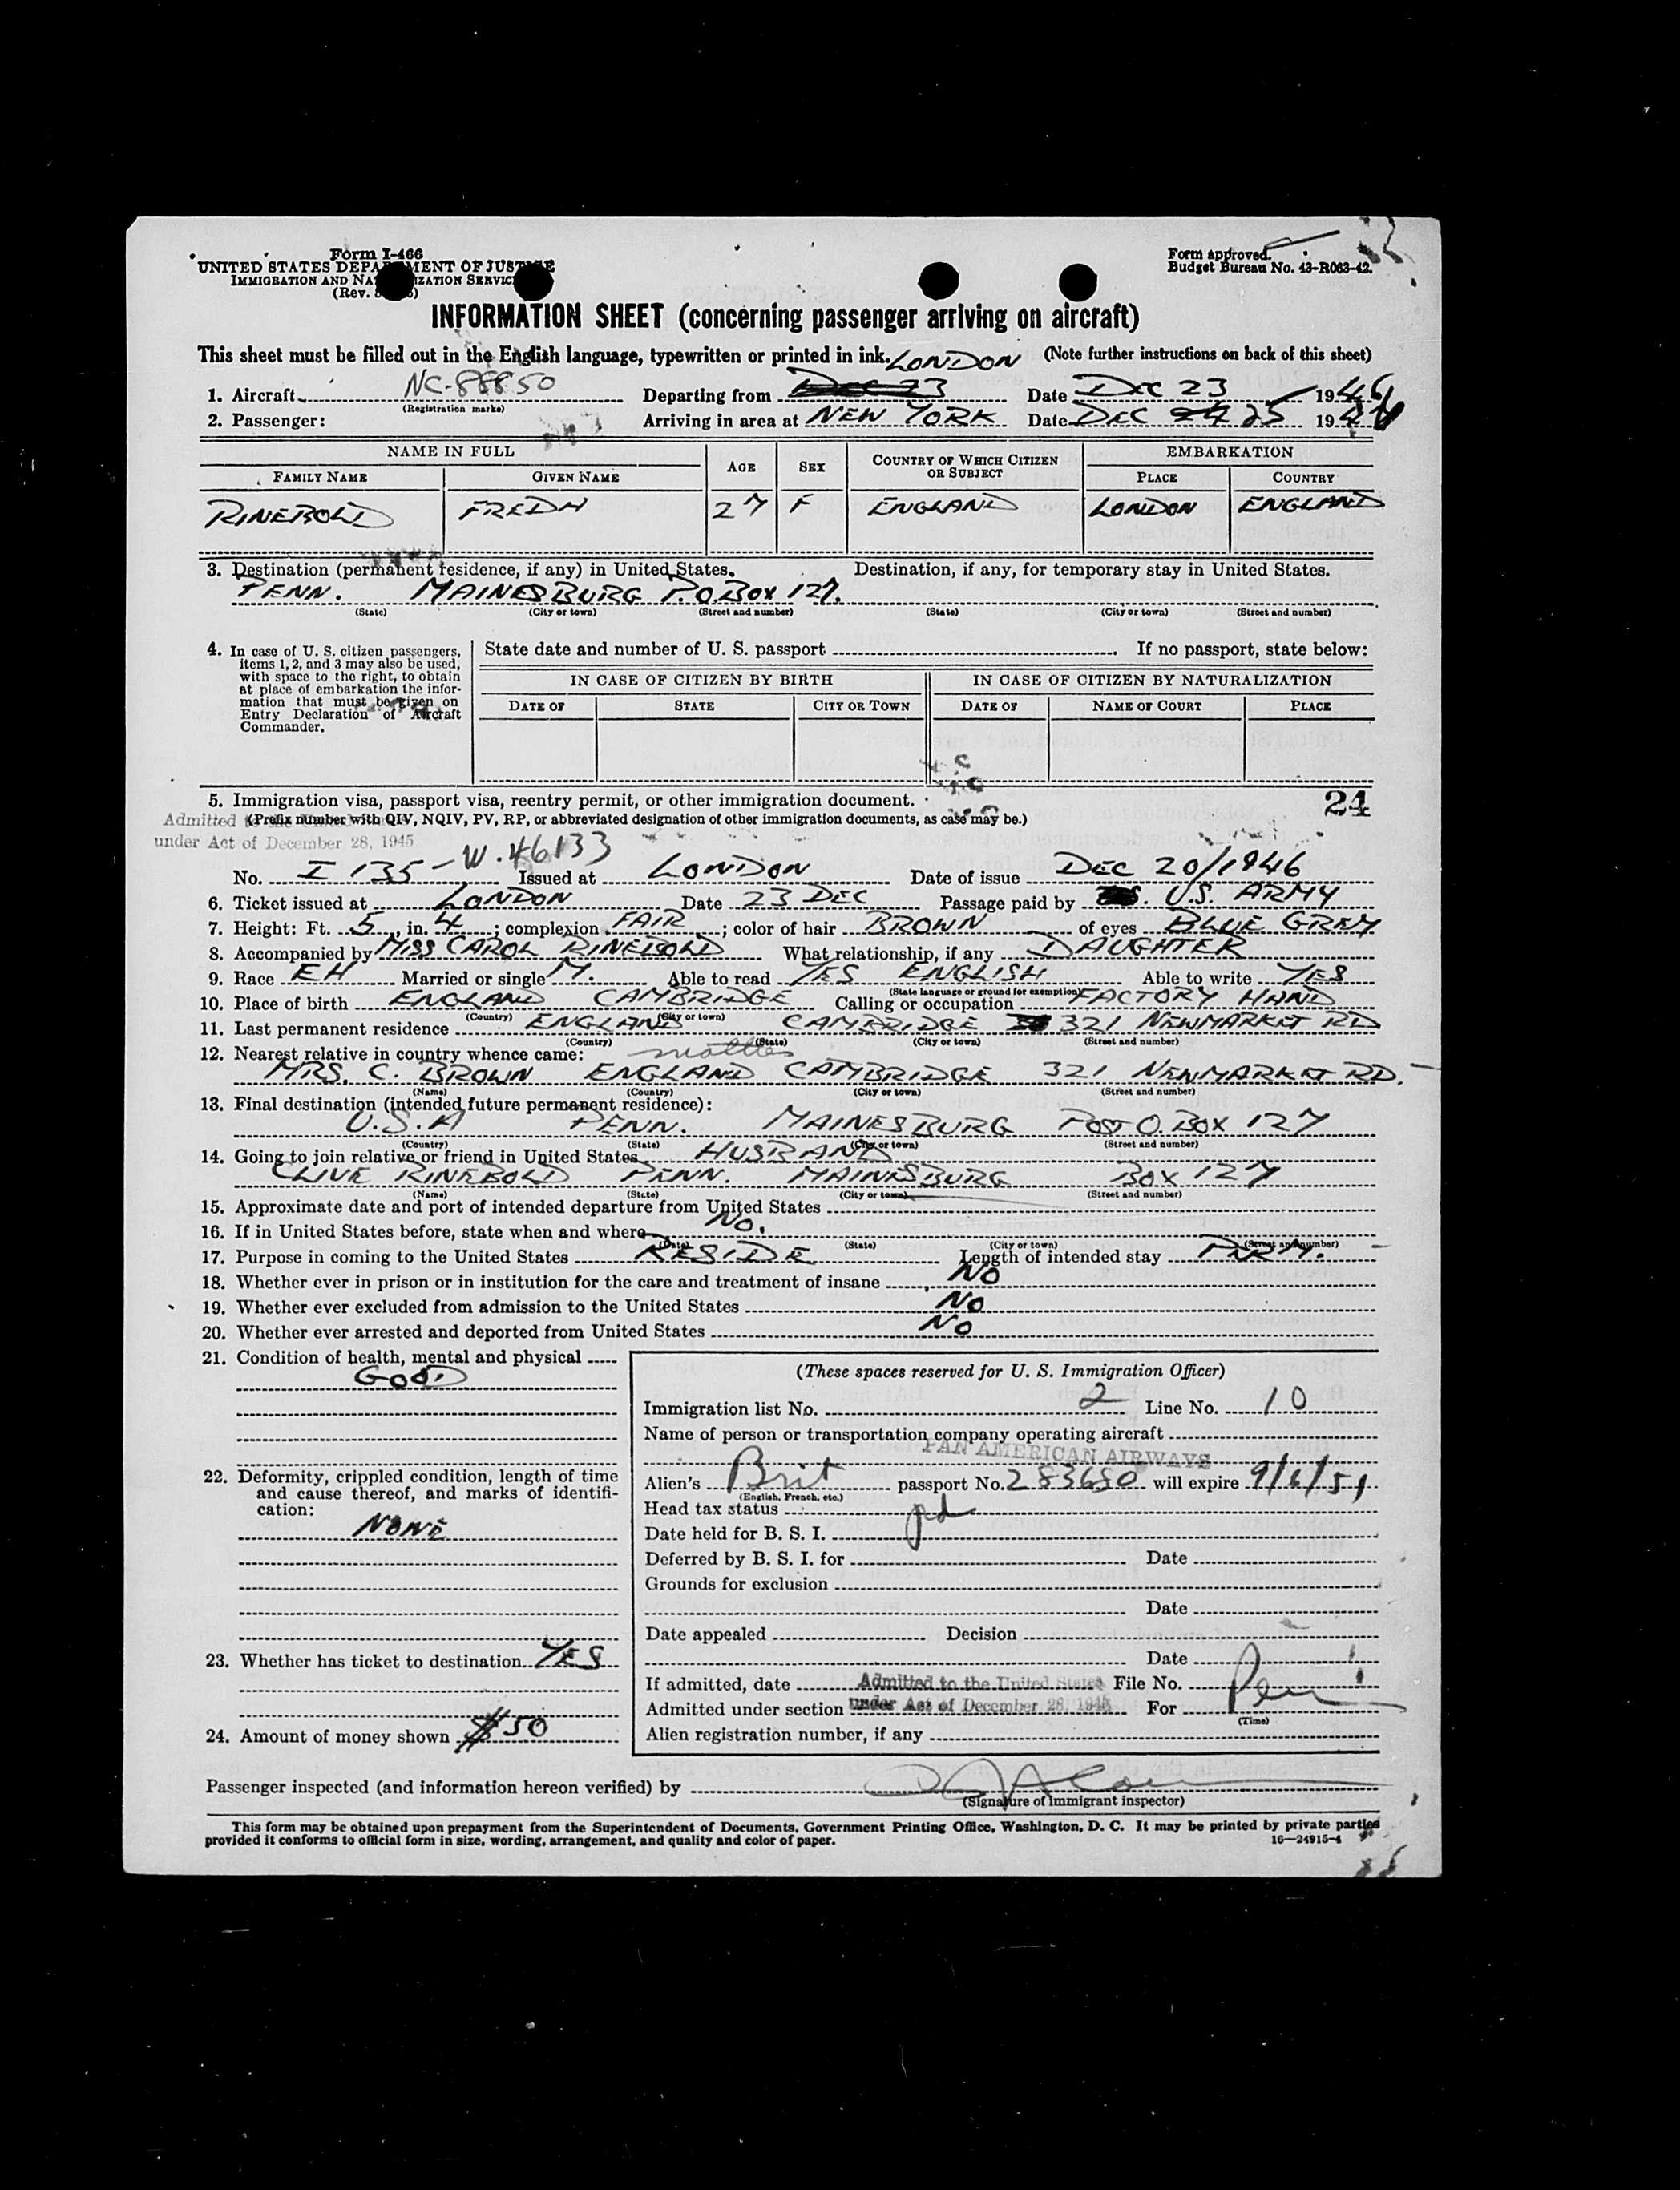 Form I-466
UNITED STATES DEPARTMENT OF JUSTICE
IMMIGRATION AND NATURALIZATION SERVICE
(Rev.
Form approved.
Budget Bureau No. 43-R063-42.
INFORMATION SHEET (concerning passenger arriving on aircraft)
This sheet must be filled out in the English language, typewritten or printed in ink. (Note further instructions on back of this sheet)
LONDON
1. Aircraft NC-88850 Departing from DEC 23 Date DEC 23 1946
(Registration marks)
2. Passenger: Arriving in area at NEW YORK Date DEC 24 25 1946
NAME IN FULL AGE SEX COUNTRY OF WHICH CITIZEN OR SUBJECT EMBARKATION
FAMILY NAME GIVEN NAME PLACE COUNTRY
RINEBOLD FREDA 27 F ENGLAND LONDON ENGLAND
3. Destination (permanent residence, if any) in United States. Destination, if any, for temporary stay in United States.
PENN. MAINESBURG P.O.BOX 127.
(State) (City or town) (Street and number) (State) (City or town) (Street and number)
4. In case of U. S. citizen passengers, items 1, 2, and 3 may also be used, with space to the right, to obtain at place of embarkation the information that must be given on Entry Declaration of Aircraft Commander.
State date and number of U. S. passport If no passport, state below:
IN CASE OF CITIZEN BY BIRTH IN CASE OF CITIZEN BY NATURALIZATION
DATE OF STATE CITY OR TOWN DATE OF NAME OF COURT PLACE
5. Immigration visa, passport visa, reentry permit, or other immigration document. 24
(Prefix number with QIV, NQIV, PV, RP, or abbreviated designation of other immigration documents, as case may be.)
Admitted to the United States
under Act of December 28, 1945
No. I 135-W.46133 Issued at LONDON Date of issue DEC 20/1946
6. Ticket issued at LONDON Date 23 DEC Passage paid by U.S. ARMY
7. Height: Ft. 5, in. 4; complexion FAIR; color of hair BROWN of eyes BLUE GREY
8. Accompanied by MISS CAROL RINEBOLD What relationship, if any DAUGHTER
9. Race EH Married or single M. Able to read YES ENGLISH Able to write YES
(State language or ground for exemption)
10. Place of birth ENGLAND CAMBRIDGE Calling or occupation FACTORY HAND
(Country) (City or town)
11. Last permanent residence ENGLAND CAMBRIDGE 321 NEWMARKET RD
(Country) (State) (City or town) (Street and number)
12. Nearest relative in country whence came: mother
MRS. C. BROWN ENGLAND CAMBRIDGE 321 NEWMARKET RD.
(Name) (Country) (City or town) (Street and number)
13. Final destination (intended future permanent residence):
U.S.A PENN. MAINESBURG POST O. BOX 127
(Country) (State) (City or town) (Street and number)
14. Going to join relative or friend in United States HUSBAND
CLIVE RINEBOLD PENN. MAINESBURG BOX 127
(Name) (State) (City or town) (Street and number)
15. Approximate date and port of intended departure from United States
16. If in United States before, state when and where No.
(Date) (State) (City or town) (Street and number)
17. Purpose in coming to the United States RESIDE Length of intended stay PERM.
18. Whether ever in prison or in institution for the care and treatment of insane NO
19. Whether ever excluded from admission to the United States NO
20. Whether ever arrested and deported from United States NO
21. Condition of health, mental and physical
GOOD
22. Deformity, crippled condition, length of time and cause thereof, and marks of identification:
NONE
23. Whether has ticket to destination YES
24. Amount of money shown $50
(These spaces reserved for U. S. Immigration Officer)
Immigration list No. 2 Line No. 10
Name of person or transportation company operating aircraft
PAN AMERICAN AIRWAYS
Alien's Brit passport No. 283680 will expire 9/6/51
(English, French, etc.)
Head tax status pd
Date held for B. S. I.
Deferred by B. S. I. for Date
Grounds for exclusion
Date
Date appealed Decision
Date
If admitted, date Admitted to the United States File No.
Admitted under section under Act of December 28, 1945 For
(Time)
Alien registration number, if any
Passenger inspected (and information hereon verified) by
(Signature of immigrant inspector)
This form may be obtained upon prepayment from the Superintendent of Documents, Government Printing Office, Washington, D. C. It may be printed by private parties
provided it conforms to official form in size, wording, arrangement, and quality and color of paper. 16—24915-4